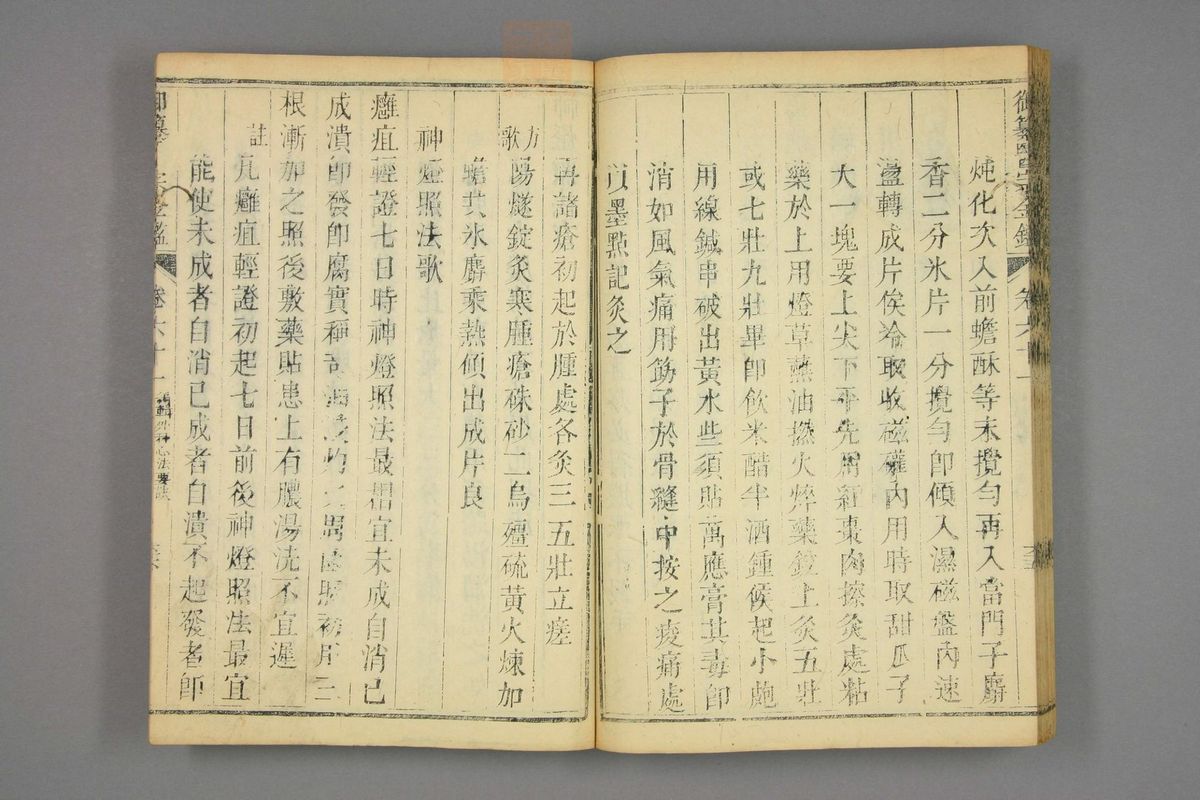 御纂醫宗金鑑 卷六十一
燉化次入前蟾酥等末攪勻再入當門子麝
香二分氷片一分攪勻卽傾入濕磁盤內速
盪轉成片俟冷取收磁礶內用時取甜瓜子
大一塊要上尖下平先用紅棗肉擦灸處粘
藥於上用燈草蘸油撚火焠藥錠上灸五壯
或七壯九壯畢卽飮米醋半酒鍾候起小皰
用線鍼串破出黃水些須貼萬應膏其毒卽
消如風氣痛用筯子於骨縫中按之痠痛處
以墨點記灸之
再諸瘡初起於腫處各灸三五壯立瘥
方歌 陽燧錠灸寒腫瘡硃砂二烏殭硫黃火煉加
蟾共氷麝乘熱傾出成片良
神燈照法歌
癰疽輕證七日時神燈照法最相宜未成自消已
成潰卽發卽腐實稱奇油 灼 周 照初用三
根漸加之照後敷藥貼患上有膿湯洗不宜遲
註 凡癰疽輕證初起七日前後神燈照法最宜
能使未成者自消已成者自潰不起發者卽
御纂醫宗金鑑 卷六十一 編輯外科心法要訣